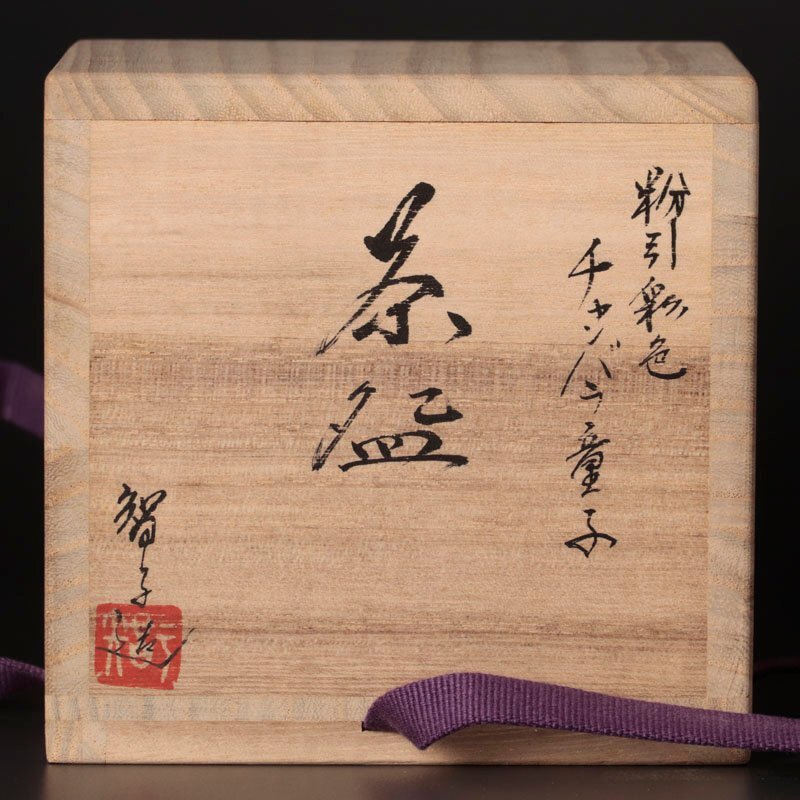 粉引彩色
チャンバラ童子
茶盌
智子造